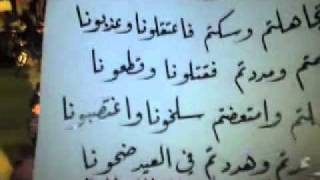 تجاهلتم وسكتم فاعتقلونا وعذبونا
ومددتم فقتلونا وقطعونا
وامتعضتم سلخونا واغتصبونا
وهددتم في العيد ضحونا